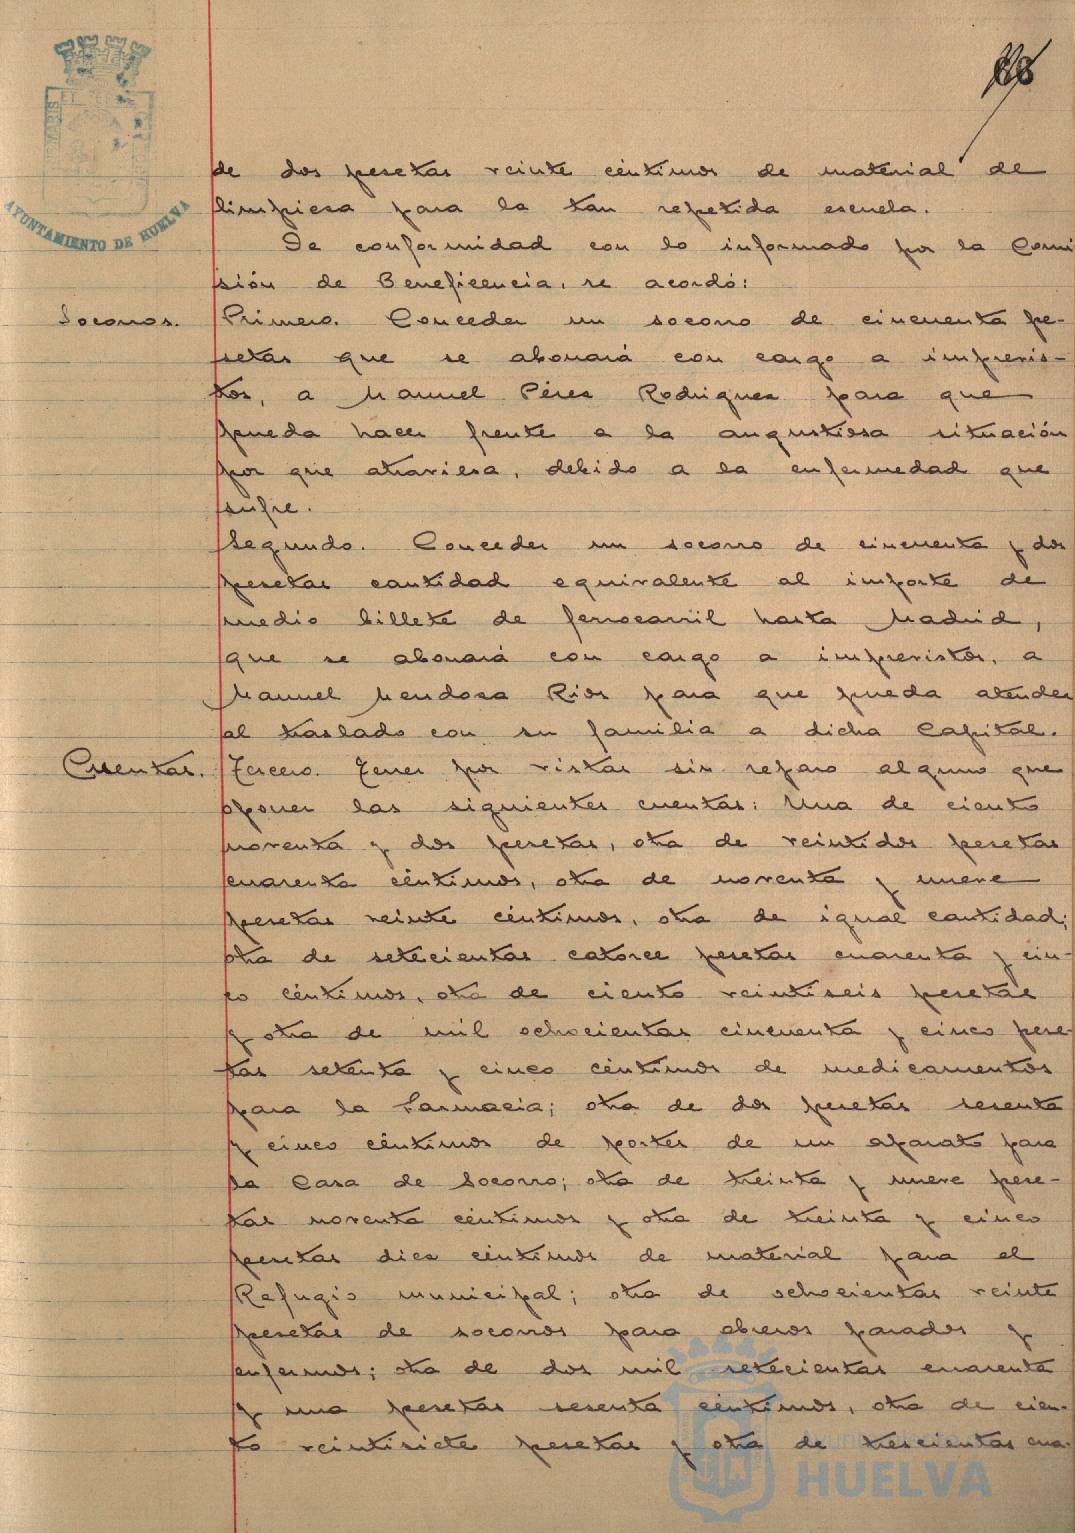 88
AYUNTAMIENTO DE HUELVA
de dos pesetas veinte céntimos de material de
limpieza para la tan repetida escuela.
De conformidad con lo informado por la Comi
sión de Beneficencia, se acordó:
Socorros. Primero. Conceder un socorro de cincuenta pe-
setas que se abonará con cargo a imprevis-
tos, a Manuel Pérez Rodriguez para que
pueda hacer frente a la angustiosa situación
por que atraviesa, debido a la enfermedad que
sufre.
Segundo. Conceder un socorro de cincuenta y dos
pesetas cantidad equivalente al importe de
medio billete de ferrocarril hasta Madrid,
que se abonará con cargo a imprevistos, a
Manuel Mendoza Rios para que pueda atender
al traslado con su familia a dicha Capital.
Cuentas. Tercero. Tener por vistas sin reparo alguno que
oponer las siguientes cuentas: Una de ciento
noventa y dos pesetas, otra de veintidos pesetas
cuarenta céntimos, otra de noventa y nueve
pesetas veinte céntimos, otra de igual cantidad;
otra de setecientas catorce pesetas cuarenta y cin-
co céntimos, otra de ciento veintiseis pesetas
y otra de mil ochocientas cincuenta y cinco pese-
tas setenta y cinco céntimos de medicamentos
para la Farmacia; otra de dos pesetas sesenta
y cinco céntimos de portes de un aparato para
la Casa de Socorro; otra de treinta y nueve pese-
tas noventa céntimos y otra de treinta y cinco
pesetas diez céntimos de material para el
Refugio municipal; otra de ochocientas veinte
pesetas de socorros para obreros parados y
enfermos; otra de dos mil setecientas cuarenta
y una pesetas sesenta céntimos, otra de cien-
to veintisiete pesetas y otra de trescientas cua-
Ayuntamiento de
HUELVA